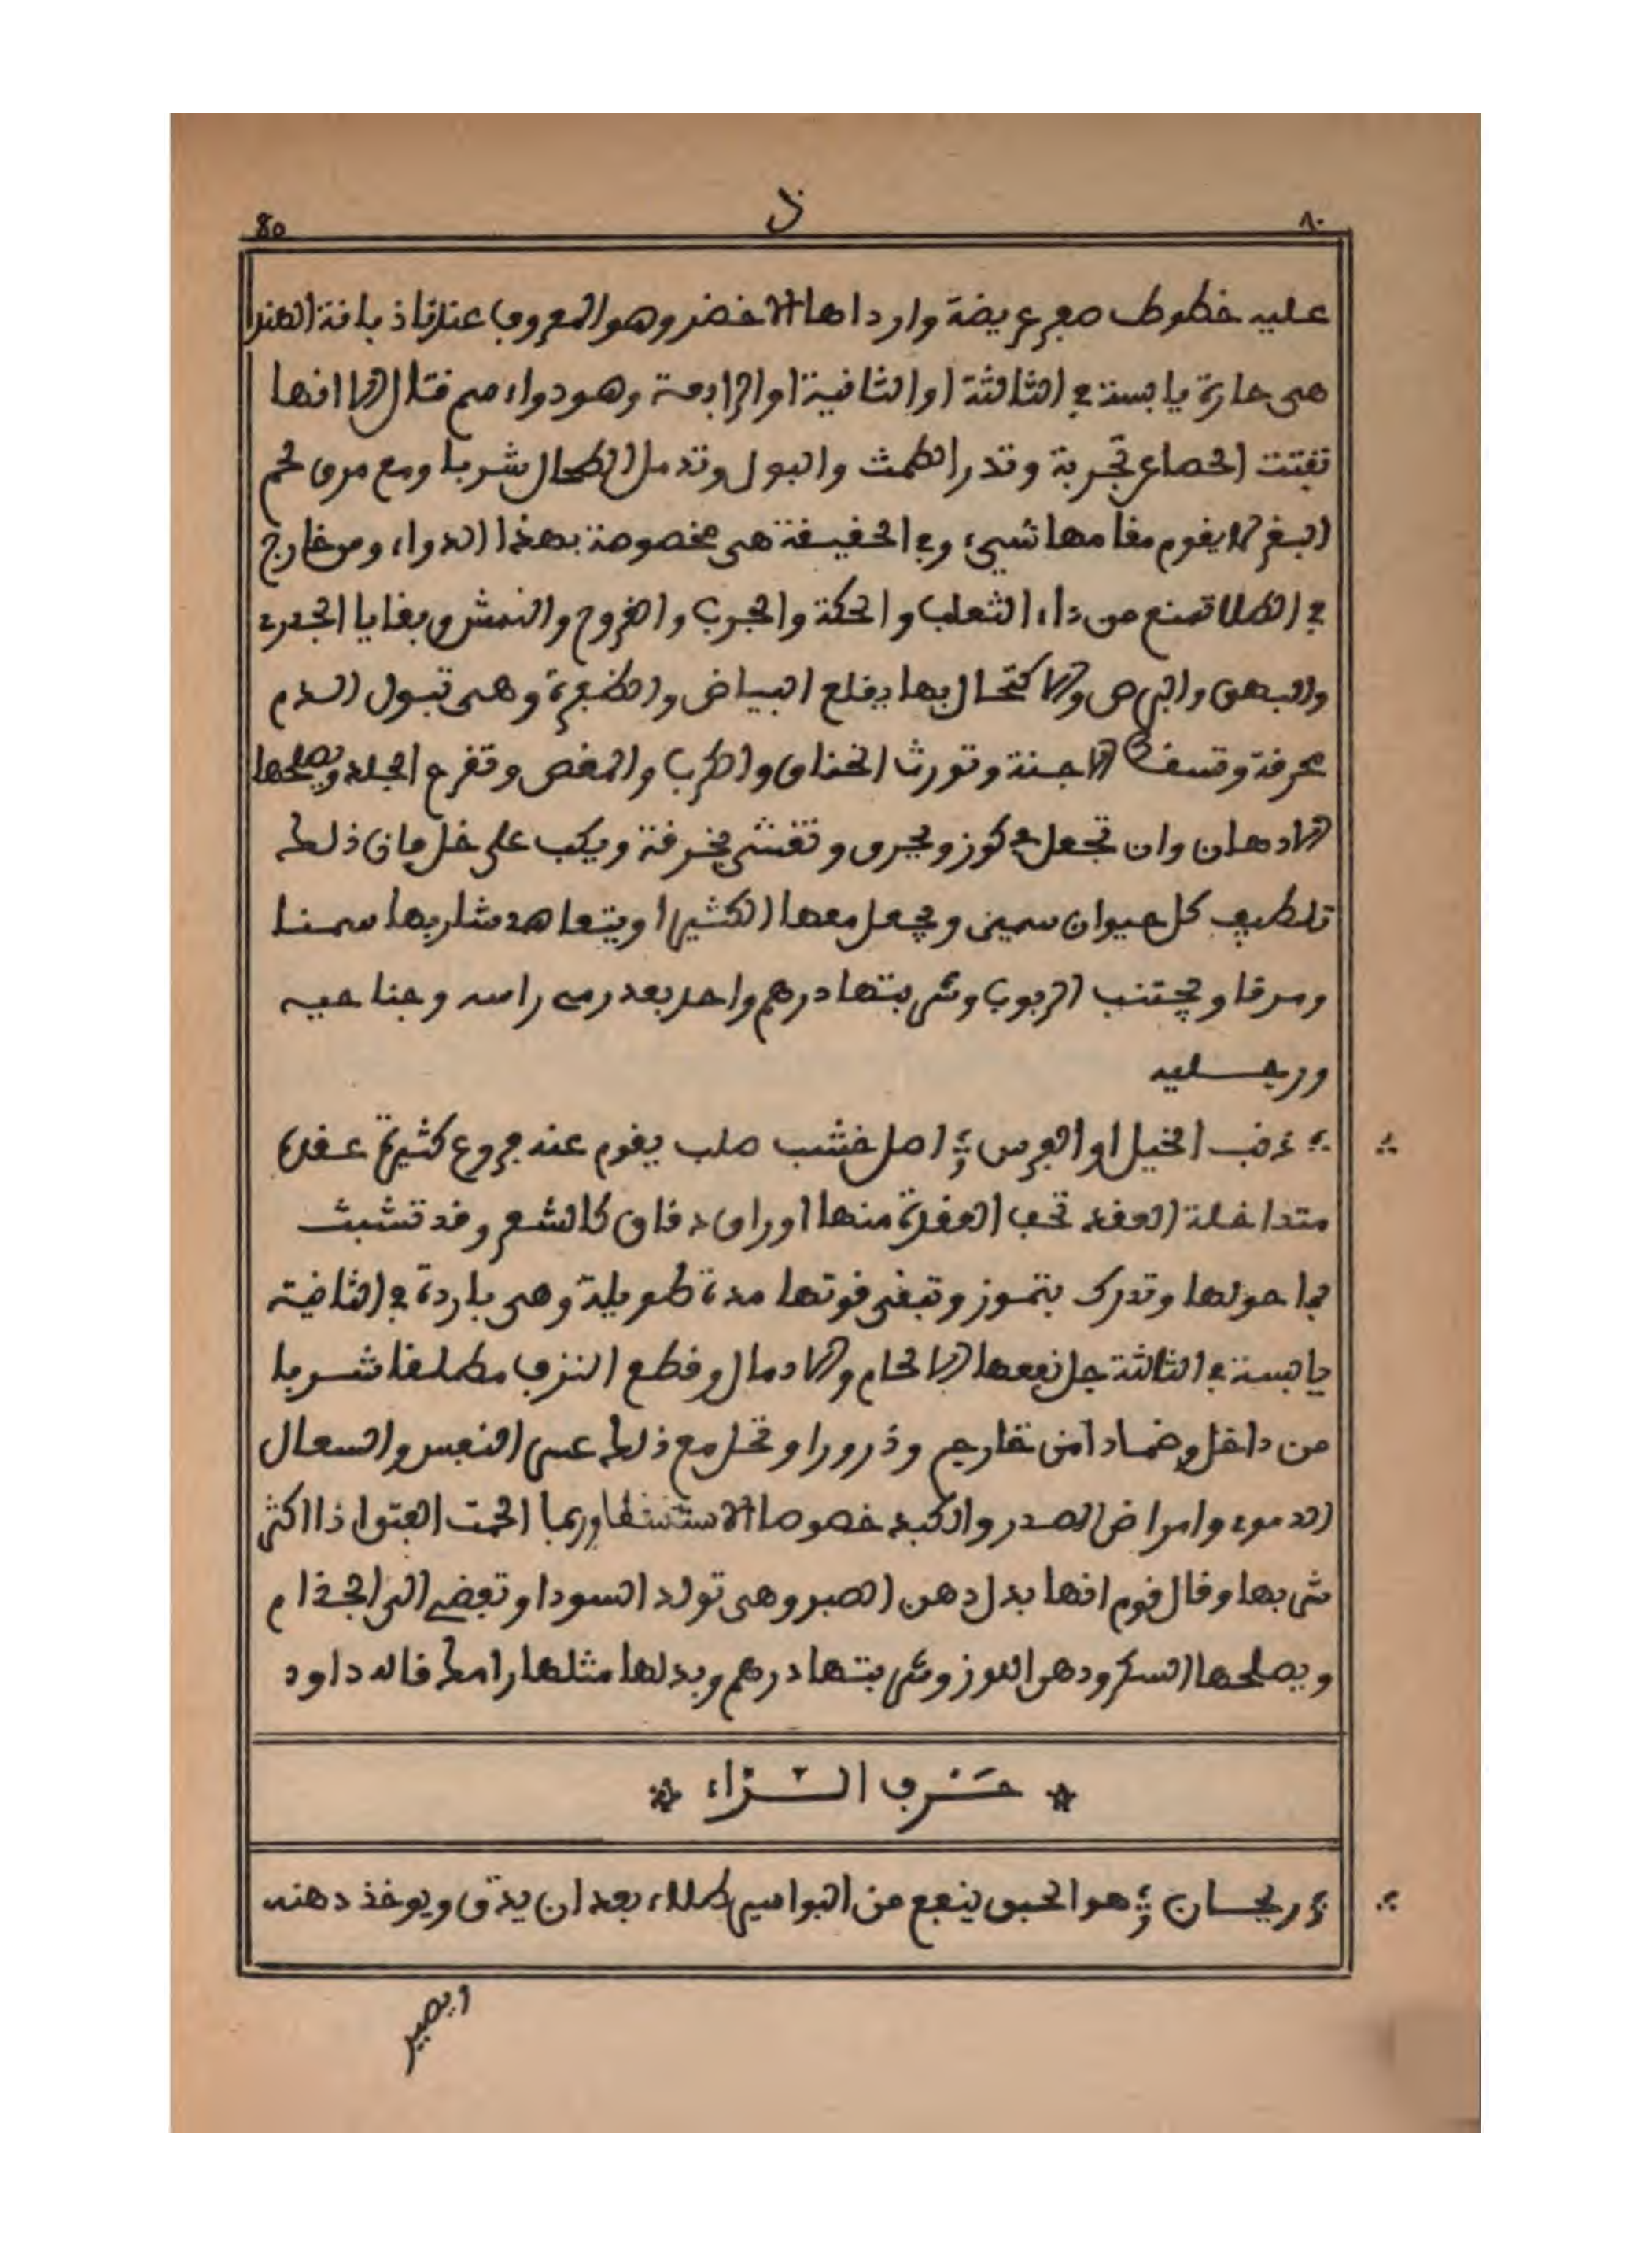 ٨٠ ذ 80
عليه خطوط صفر عريضة واردأها الاخضر وهو المعروف عندنا ذبانة الهند
هى حارة يابسة في الثالثة او الثانية او الرابعة وهو دواء سم قتال الا انها
تفتت الحصا عن تجربة وتدر الطمث والبول وتدمل الطحال شربا ومع مرق لحم
البقر لا يقوم مقامها شيء وفي الحقيقة هى مخصوصة بهذا الدواء ومن خارج
في الطلا تمنع من داء الثعلب والحكة والجرب والقروح والنمش وبقايا الجدرى
والبهق والبرص والاكتحال بها يقلع البياض والظفرة وهى تبول الدم
محرقة وتسقط الاجنة وتورث الخناق والكرب والمغص وتقرح الجلد ويصلحها
الادهان وان تجعل في كوز ويحرق وتغشى بخرقة ويكب على خل فان ذلك
تلطيف كل حيوان سمين ويجعل معها الكثيرا ويتعاهد شاربها سمنا
ومرقا ويجتنب الربوب وشربتها درهم واحد بعد رمى راسه وجناحيه
ورجليه
ذنب الخيل او الفرس اصل خشب صلب يقوم عند فروع كثيرة عقدة
متداخلة العقد تحت العقدة منها اوراق دقاق كالشعر وقد تشبث
بما حولها وتدرك بتموز وتبقى قوتها مدة طويلة وهى باردة في الثانية
يابسة في الثالثة جل نفعها الالحام والادمال وقطع النزف مطلقا شربا
من داخل وضمادا من خارج وذرورا وتحل مع ذلك عسر النفس والسعال
الدموى وامراض الصدر والكبد خصوصا الاستسقا وربما الحمت الفتوا اذا اكثر
شربها وقال قوم انها بدل دهن الصبر وهى تولد السودا وتفضى الى الجذام
ويصلحها السكر ودهن اللوز وشربتها درهم وبدلها مثلها رامك قاله داود
حَرف الـرّاء
ريحان هو الحبق ينفع من البواسير طلاء بعد ان يدق ويوخذ دهنه
ويصير